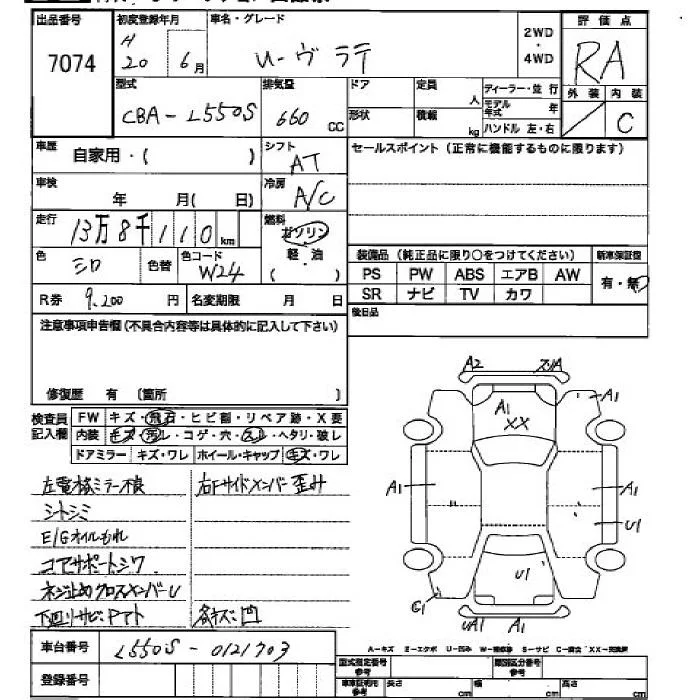 出品番号 初度登録年月 車名・グレード 2WD 評価点
7074 H 20 6月 U-ヴラテ ・ 4WD RA
型式 排気量 ドア 定員 人 ディーラー・並行 外装 内装
CBA-L550S 660 CC 形状 積載 kg モデル年式 年 ハンドル 左・右 C
車歴 自家用・( ) シフト AT セールスポイント (正常に機能するものに限ります)
車検 年 月( 日) 冷房 A/C
走行 13万8千110km 燃料 ガソリン
色 シロ 色替 色コード W24 軽・油 ( ) 装備品 (純正品に限り○をつけてください) 新車保証書
PS PW ABS エアB AW 有・無
R券 9,200 円 名変期限 月 日 SR ナビ TV カワ
注意事項申告欄(不具合内容等は具体的に記入して下さい) 後日品
修復歴 有 〔箇所 〕
検査員記入欄 FW キズ・飛石・ヒビ割・リペア跡・X要
内装 キズ・汚レ・コゲ・穴・スレ・ヘタリ・破レ
ドアミラー キズ・ワレ ホイール・キャップ キズ・ワレ
左電格ミラー不良 右Fサイドメンバー歪み
シートシミ
E/Gオイルもれ
コアサポートシワ
ネジ止めクロスメンバーU
下回りサビ、 各キズ凹
A2 A1
A1
XX
A1 A1
U1
U1
G1 UA1 A1
車台番号 L550S-0121703
A-キズ E-エクボ U-凹み S-サビ XX-交換済
登録番号
型式指定番号 参考 類別区分番号 参考
長さ cm 幅 cm 高さ cm